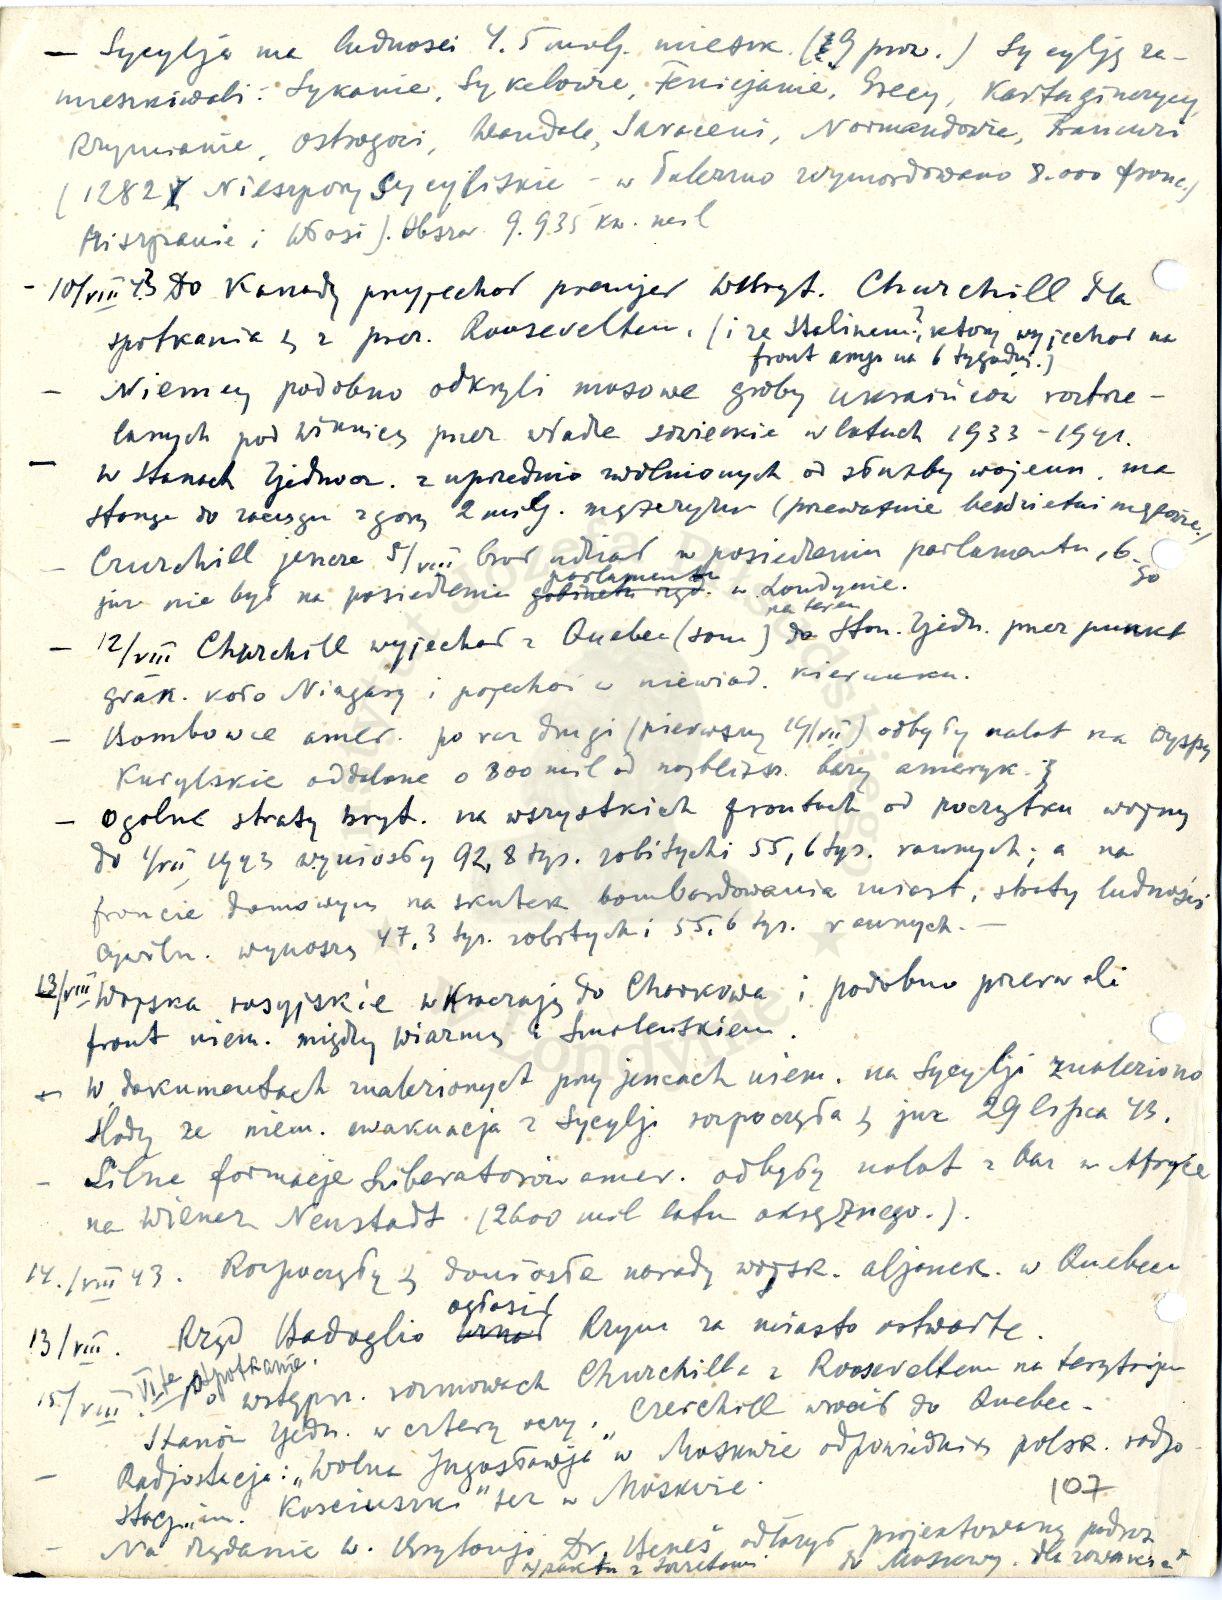 — Sycylja ma ludności 4.5 milj. mieszk. (9 prow.) Sycylję za-
mieszkiwali: Sykanie, Sykelowie, Fenicjanie, Grecy, Kartagińczycy
Rzymianie, Ostrogoci, Wandale, Saraceni, Normandowie, Francuzi
(1282 Nieszpory Sycylijskie – w Palermo wymordowano 8.000 franc.)
Hiszpanie i Włosi). Obszar 9.935 kw. mil
- 10/VIII 43 Do Kanady przyjechał premjer WBryt. Churchill dla
spotkania ς z prez. Rooseveltem. (i ze Stalinem?, który wyjechał na
front na 6 tygodni.)
– Niemcy podobno odkryli masowe groby ukraińców roztrze-
lanych pod Winnicą przez władze sowieckie w latach 1933–1941.
– W Stanach Zjednocz. z uprzednio zwolnionych od służby wojenn. ma
stanąć do zaciągu zgórą 2 milj. mężczyzn (przeważnie bezdzietni mężowie)
– Churchill jeszcze 5/VIII brał udział w posiedzeniu parlamentu, 6-go
już nie był na posiedzeniu parlamentu w Londynie.
– 12/VIII Churchill wyjechał z Quebec (sam) na teren Stan. Zjedn. przez punkt
gran. koło Niagary i pojechał w niewiad. kierunku.
– Bombowce amer. po raz drugi (pierwszy 14/VII) odbyły nalot na wyspy
Kurylskie oddalone o 800 mil od najbliższ. bazy ameryk.
– Ogólne straty bryt. na wszystkich frontach od początku wojny
do 1/VII 1943 wyniosły 92,8 tys. zabitych i 55,6 tys. rannych; a na
froncie domowym na skutek bombardowania miast, straty ludności
cywiln. wynoszą 47,3 tys. zabitych i 55,6 tys. rannych. —
13/VIII Wojska rosyjskie wkraczają do Charkowa i podobno przerwali
front niem. między Wiazmą i Smoleńskiem.
– W dokumentach znalezionych przy jeńcach niem. na Sycylji znaleziono
ślady że niem. ewakuacja z Sycylji rozpoczęła ς już 29 lipca 43.
– Silne formacje Liberatorów amer. odbyły nalot z baz w Afryce
na Wiener Neustadt (2600 mil lotu okrężnego.).
14./VIII 43. Rozpoczęły ς doniosłe narady wojsk. aljanck. w Quebecu
13/VIII. Rząd Badoglio ogłosił Rzym za miasto otwarte.
VI-te spotkanie.
15/VIII. Po wstępn. rozmowach Churchilla z Rooseveltem na terytorjum
Stanów Zjedn. w cztery oczy, Czerchill wrócił do Quebec.
– Radjostacja: „Wolna Jugosławja" w Moskwie odpowiednik polsk. radjo-
stacji „im. Kościuszki" też w Moskwie.
107
– Na żądanie W. Brytanji Dr. Beneš odłożył projektowaną podróż
do Moskwy. dla zawarcia
paktu z Sowietami